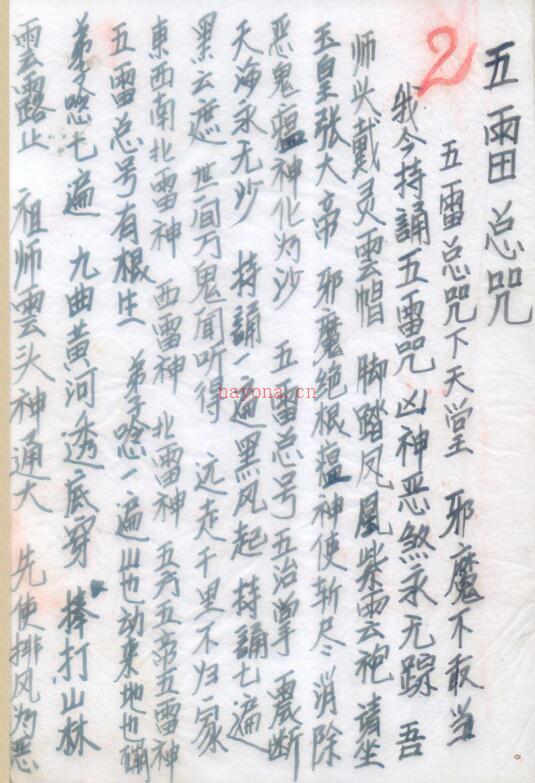 五雷总咒
2
五雷总咒下天堂 邪魔不敢当
我今持誦五雷咒 凶神恶煞永无踪 吾
师头戴灵雲帽 脚踏凤凰紫云袍 请坐
玉皇张大帝 邪魔绝根瘟神使斩尽尽消除
恶鬼瘟神化为沙 五雷总号五治掌 震断
天海永无沙 持誦一遍黑风起 持誦七遍
黑云遮 世间万鬼闻听得 远走千里不归家
東西南北雷神 西雷神 北雷神 五方五帝五雷神
五雷总号有根生 弟子唸一遍山也动来地也崩
弟子唸七遍 九曲黄河透底穿 捧打山林
雲露止 祖师雲头神通大 先使排风为恶
hayona.cn